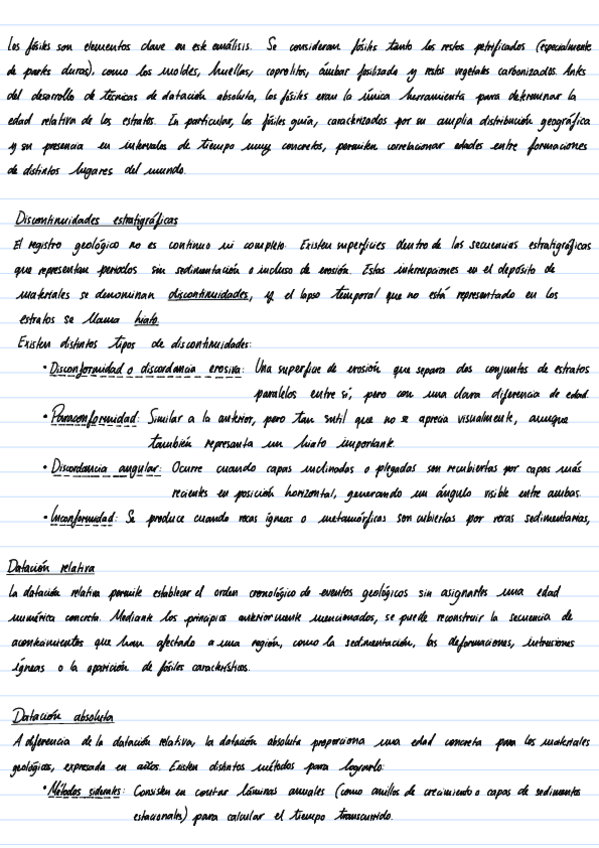 Los fósiles son elementos clave en este análisis. Se consideran fósiles tanto los restos petrificados (especialmente
de partes duras), como los moldes, huellas, coprolitos, ámbar fosilizado y restos vegetales carbonizados. Antes
del desarrollo de técnicas de datación absoluta, los fósiles eran la única herramienta para determinar la
edad relativa de los estratos. En particular, los fósiles guía, caracterizados por su amplia distribución geográfica
y su presencia en intervalos de tiempo muy concretos, permiten correlacionar edades entre formaciones
de distintos lugares del mundo.
Discontinuidades estratigráficas
El registro geológico no es continuo ni completo. Existen superficies dentro de las secuencias estratigráficas
que representan periodos sin sedimentación o incluso de erosión. Estas interrupciones en el depósito de
materiales se denominan discontinuidades, y el lapso temporal que no está representado en los
estratos se llama hiato.
Existen distintos tipos de discontinuidades:
• Disconformidad o discordancia erosiva: Una superficie de erosión que separa dos conjuntos de estratos
paralelos entre sí, pero con una clara diferencia de edad.
• Paraconformidad: Similar a la anterior, pero tan sutil que no se aprecia visualmente, aunque
también representa un hiato importante.
• Discordancia angular: Ocurre cuando capas inclinadas o plegadas son recubiertas por capas más
recientes en posición horizontal, generando un ángulo visible entre ambas.
• Inconformidad: Se produce cuando rocas ígneas o metamórficas son cubiertas por rocas sedimentarias,
Datación relativa
La datación relativa permite establecer el orden cronológico de eventos geológicos sin asignarles una edad
numérica concreta. Mediante los principios anteriormente mencionados, se puede reconstruir la secuencia de
acontecimientos que han afectado a una región, como la sedimentación, las deformaciones, intrusiones
ígneas o la aparición de fósiles característicos.
Datación absoluta
A diferencia de la datación relativa, la datación absoluta proporciona una edad concreta para los materiales
geológicos, expresada en años. Existen distintos métodos para lograrlo:
• Métodos siderales: Consisten en contar láminas anuales (como anillos de crecimiento o capas de sedimentos
estacionales) para calcular el tiempo transcurrido.